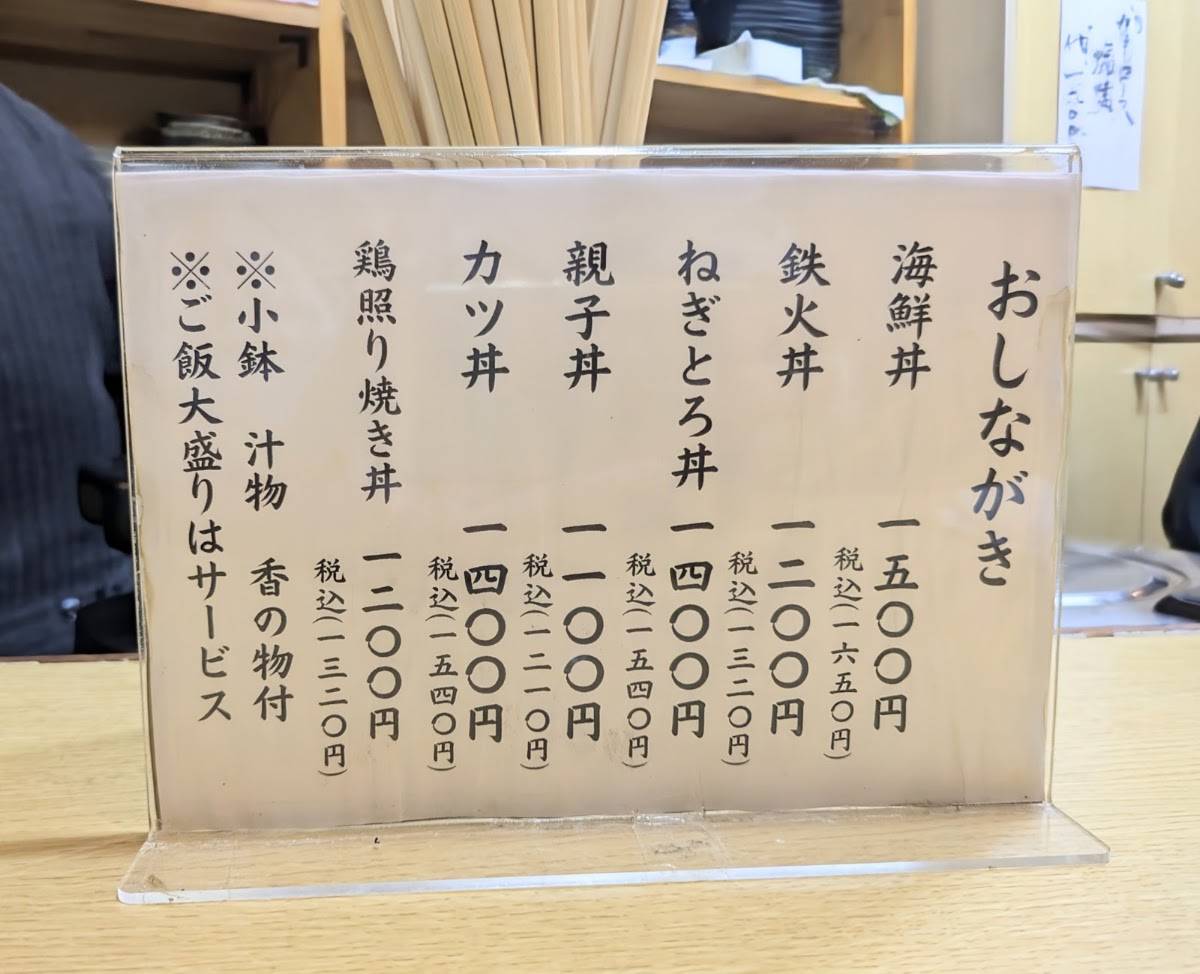 おしながき
海鮮丼 一五〇〇円
税込(一六五〇円)
鉄火丼 一二〇〇円
税込(一三二〇円)
ねぎとろ丼 一四〇〇円
税込(一五四〇円)
親子丼 一一〇〇円
税込(一二一〇円)
カツ丼 一四〇〇円
税込(一五四〇円)
鶏照り焼き丼 一二〇〇円
税込(一三二〇円)
※小鉢 汁物 香の物付
※ご飯大盛りはサービス